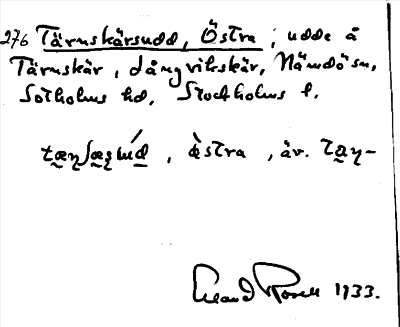 276 Tärnskärsudd, Östra ; udde å
Tärnskär, Långvikskär, Nämdö sn,
Sotholms hd, Stockholms l.
, ǜstra , äv. tan-
Erland Rosell 1933.